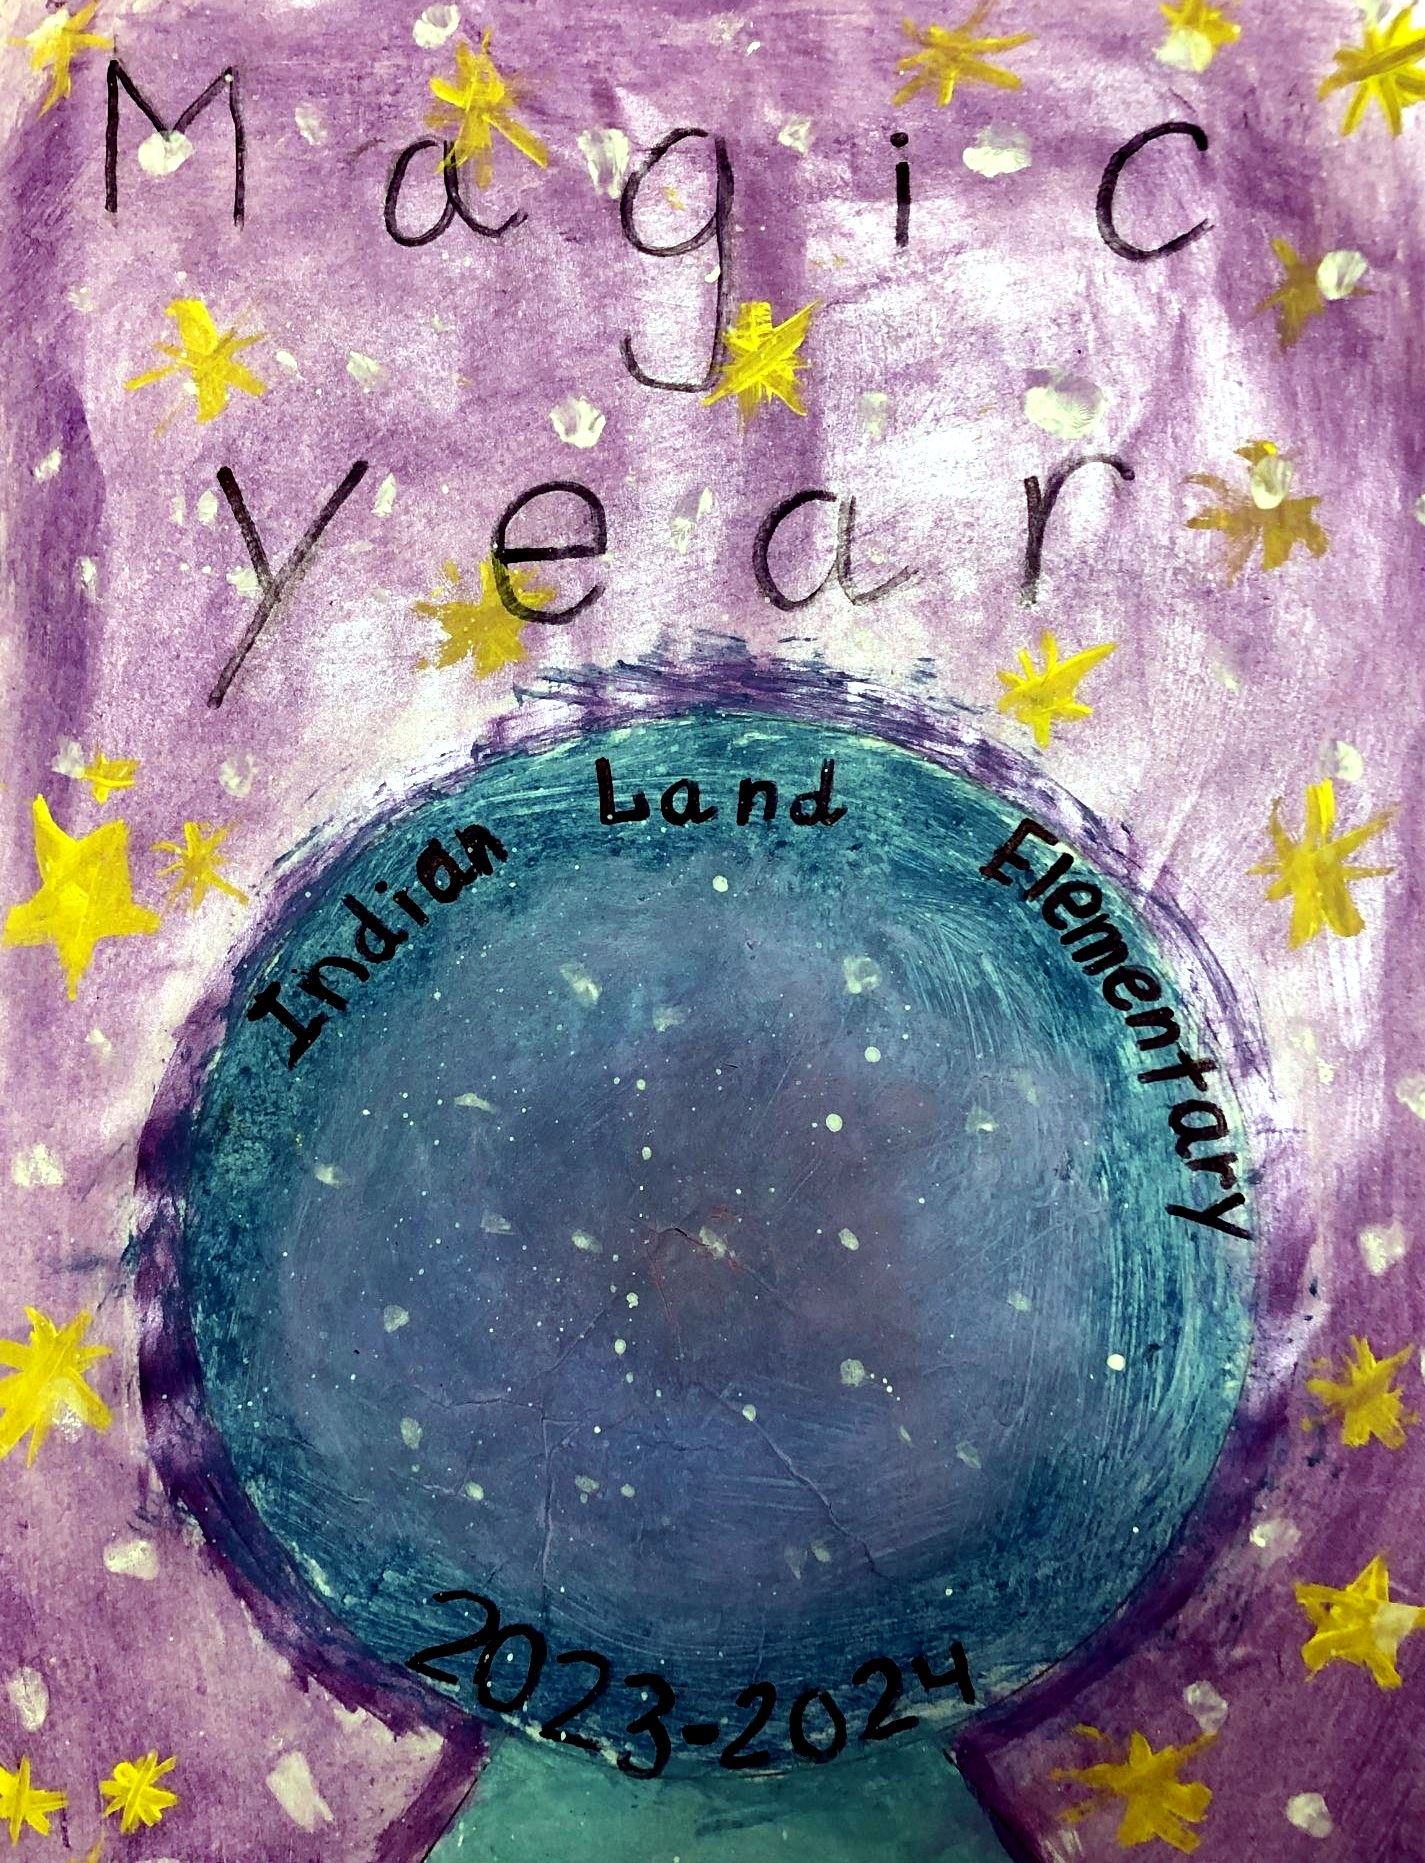 Magic
year
Indian Land Elementary
2023-2024